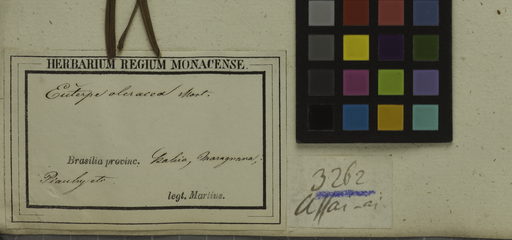 HERBARIUM REGIUM MONACENSE.
Euterpe oleracea Mart.
Brasilia provinc. Bahia, Maragnana,
Piauhy etc.
legt. Martius.
3262